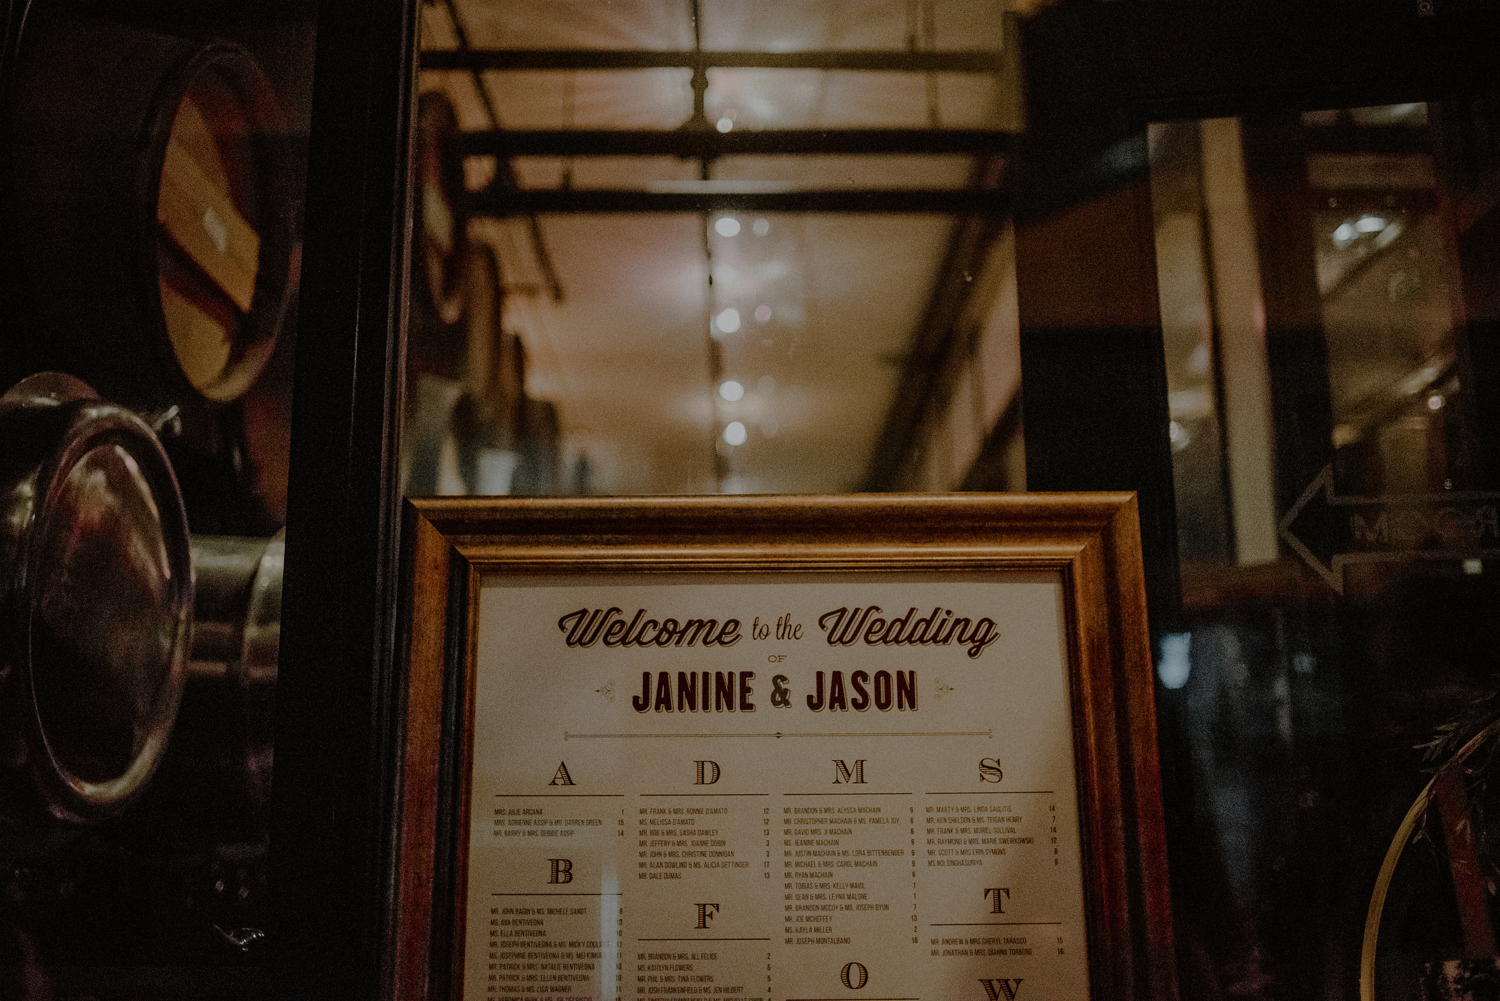 Welcome to the Wedding
OF
JANINE & JASON
A
MRS. JULIE ARCANA 1
MRS. ADRIENNE ASSIP & MR. DARREN GREEN 15
MR. BARRY & MRS. DEBBIE ASSIP 14
B
MR. JOHN BAGIN & MS. MICHELE SANDT
MS. AVA BENTIVEGNA
MS. ELLA BENTIVEGNA
MR. JOSEPH BENTIVEGNA & MS. MICKY
MS. JOSEPHINE BENTIVEGNA & MS.
MR. PATRICK & MRS. NATALIE BENTIVEGNA
MR. PATRICK & MRS. ELLEN BENTIVEGNA
MR. THOMAS & MS. LISA WAGNER
D
MR. FRANK & MRS. RONNIE D'AMATO 12
MS. MELISSA D'AMATO 12
MR. ROB & MRS. SASHA DAWLEY 13
MR. JEFFERY & MRS. JOANNE DOBIN 3
MR. JOHN & MRS. CHRISTINE DONNIGAN 3
MR. ALAN DOWLING & MS. ALICIA OETTINGER 17
MR. DALE DUMAS 13
F
MR. BRANDON & MRS. JILL FELICE 2
MS. KATELYN FLOWERS 5
MR. PHIL & MRS. TINA FLOWERS 5
MR. JOSH FRANKENFIELD & MS. JEN HILBERT 4
M
MR. BRANDON & MRS. ALYSSA MACHAIN 9
MR. CHRISTOPHER MACHAIN & MS. PAMELA JOY 6
MR. DAVID MRS. JI MACHAIN 6
MS. JEANINE MACHAIN 9
MR. JUSTIN MACHAIN & MS. LORA BITTENBENDER 9
MR. MICHAEL & MRS. CAROL MACHAIN 9
MR. RYAN MACHAIN 6
MR. TOBIAS & MRS. KELLY MAIOL 1
MR. SEAN & MRS. LEYNA MALONE 1
MR. BRANDON MCCOY & MR. JOSEPH BYUN 7
MR. JOE MCHEFFEY 13
MS. KAYLA MILLER 2
MR. JOSEPH MONTALBANO 16
O
S
MR. MARTY & MRS. LINDA SAULITIS 14
MR. KEN SHELDON & MS. TEIGAN HENRY 7
MR. FRANK & MRS. MURIEL SULLIVAL 14
MR. RAYMOND & MRS. MARIE SWERKOWSKI 12
MR. SCOTT & MRS ERIN SYMONS 8
MS. NOI SINGHASURIYA 6
T
MR. ANDREW & MRS CHERYL TARASCO 15
MR. JONATHAN & MRS. DIANNA TORBORG 16
W